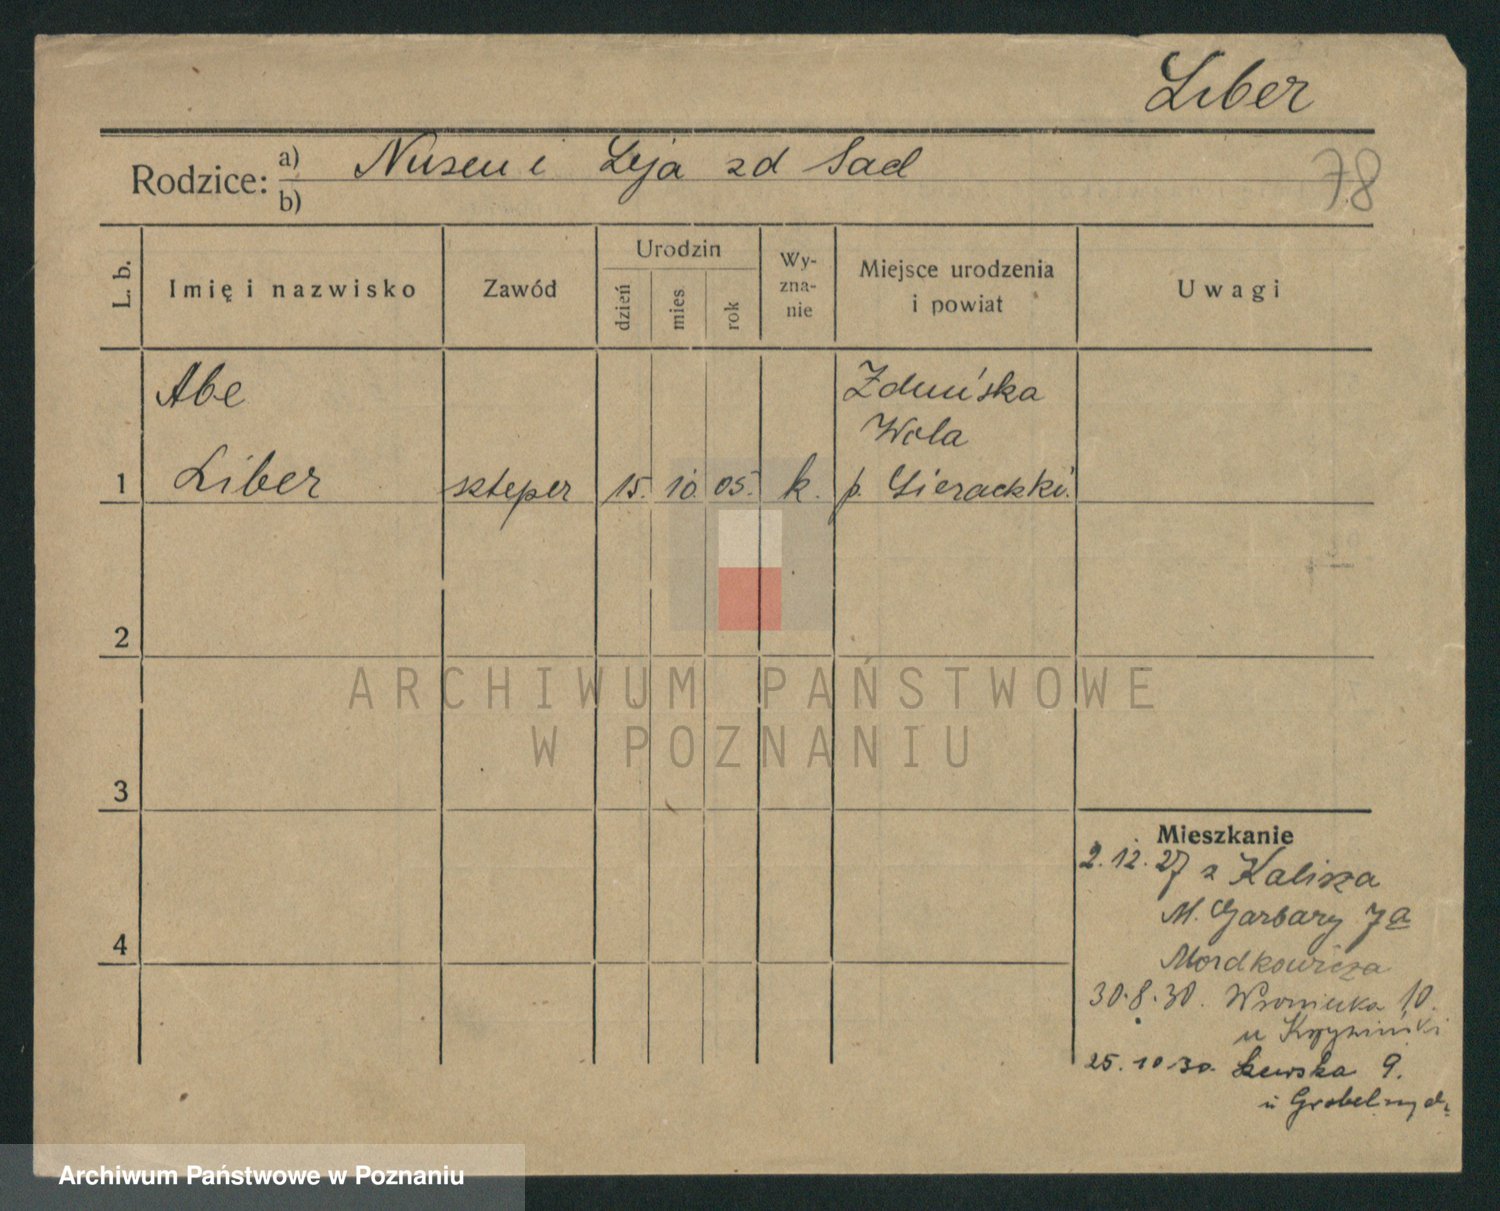 Liber
Rodzice: a) Nusen i Leja zd Sad
b)
78
L. b.
Imię i nazwisko
Zawód
Urodzin
dzień
mies
rok
Wy-
zna-
nie
Miejsce urodzenia
i powiat
Uwagi
Abe
Zduńska
Wola
1 Liber szteper 15. 10 05. k. p. Sieradzki
2
ARCHIWUM PAŃSTWOWE
W POZNANIU
3
Mieszkanie
2.12.27 z Kalisza
M. Garbary 7a
4
Mordkowicza
30.8.30. Wroniecka 10.
u
25.10.30. Szewska 9.
u
Archiwum Państwowe w Poznaniu